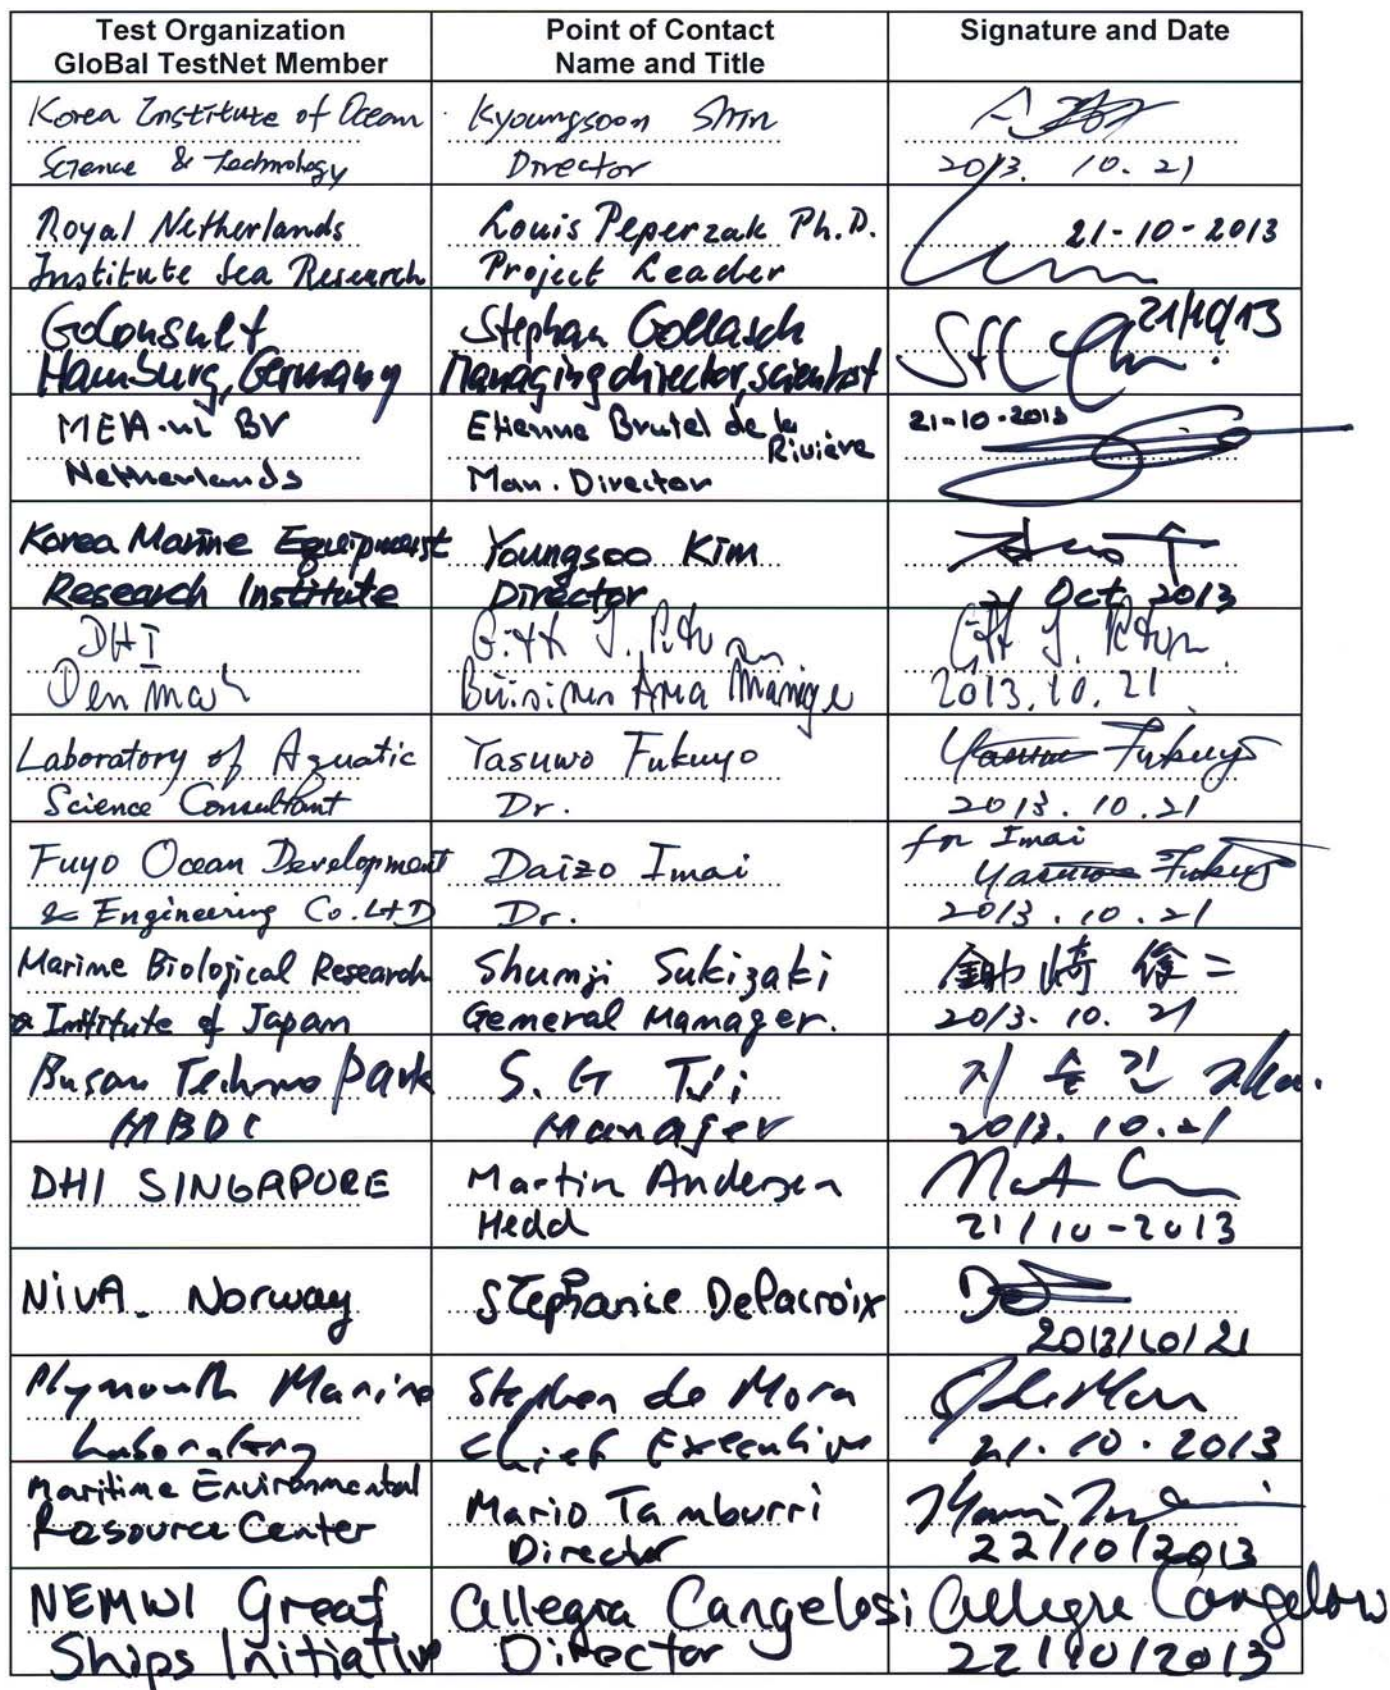 Test Organization
GloBal TestNet Member
Point of Contact
Name and Title
Signature and Date
Korea Institute of Ocean
Science & Technology
Kyoungsoon Shin
Director
2013. 10. 21
Royal Netherlands
Institute Sea Research
Louis Peperzak Ph.D.
Project Leader
21-10-2013
GoConsult
Hamburg, Germany
Stephan Gollasch
Managing director, scientist
21/10/13
MEA-nl BV
Netherlands
Etienne Brutel de la
Rivière
Man. Director
21-10-2013
Korea Marine Equipment
Research Institute
Youngsoo Kim
Director
21 Oct 2013
DHI
Denmark
Gitte J. Petersen
Business Area Manager
Gitte J. Petersen
2013.10.21
Laboratory of Aquatic
Science Consultant
Yasuwo Fukuyo
Dr.
Yasuwo Fukuyo
2013.10.21
Fuyo Ocean Development
& Engineering Co. LTD
Daizo Imai
Dr.
for Imai
Yasuwo Fukuyo
2013.10.21
Marine Biological Research
Institute of Japan
Shunji Sukizaki
General Manager.
鋤崎 俊二
2013. 10. 21
Busan Techno Park
MBDC
S. G Ji
Manager
지 승 길
2013. 10. 21
DHI SINGAPORE
Martin Andersen
Head
21/10-2013
NIVA- Norway
Stephanie Delacroix
2013/10/21
Plymouth Marine
Laboratory
Stephen de Mora
Chief Executive
21.10.2013
Maritime Environmental
Resource Center
Mario Tamburri
Director
22/10/2013
NEMWI Great
Ships Initiative
Allegra Cangelosi
Director
Allegra Cangelosi
22/10/2013